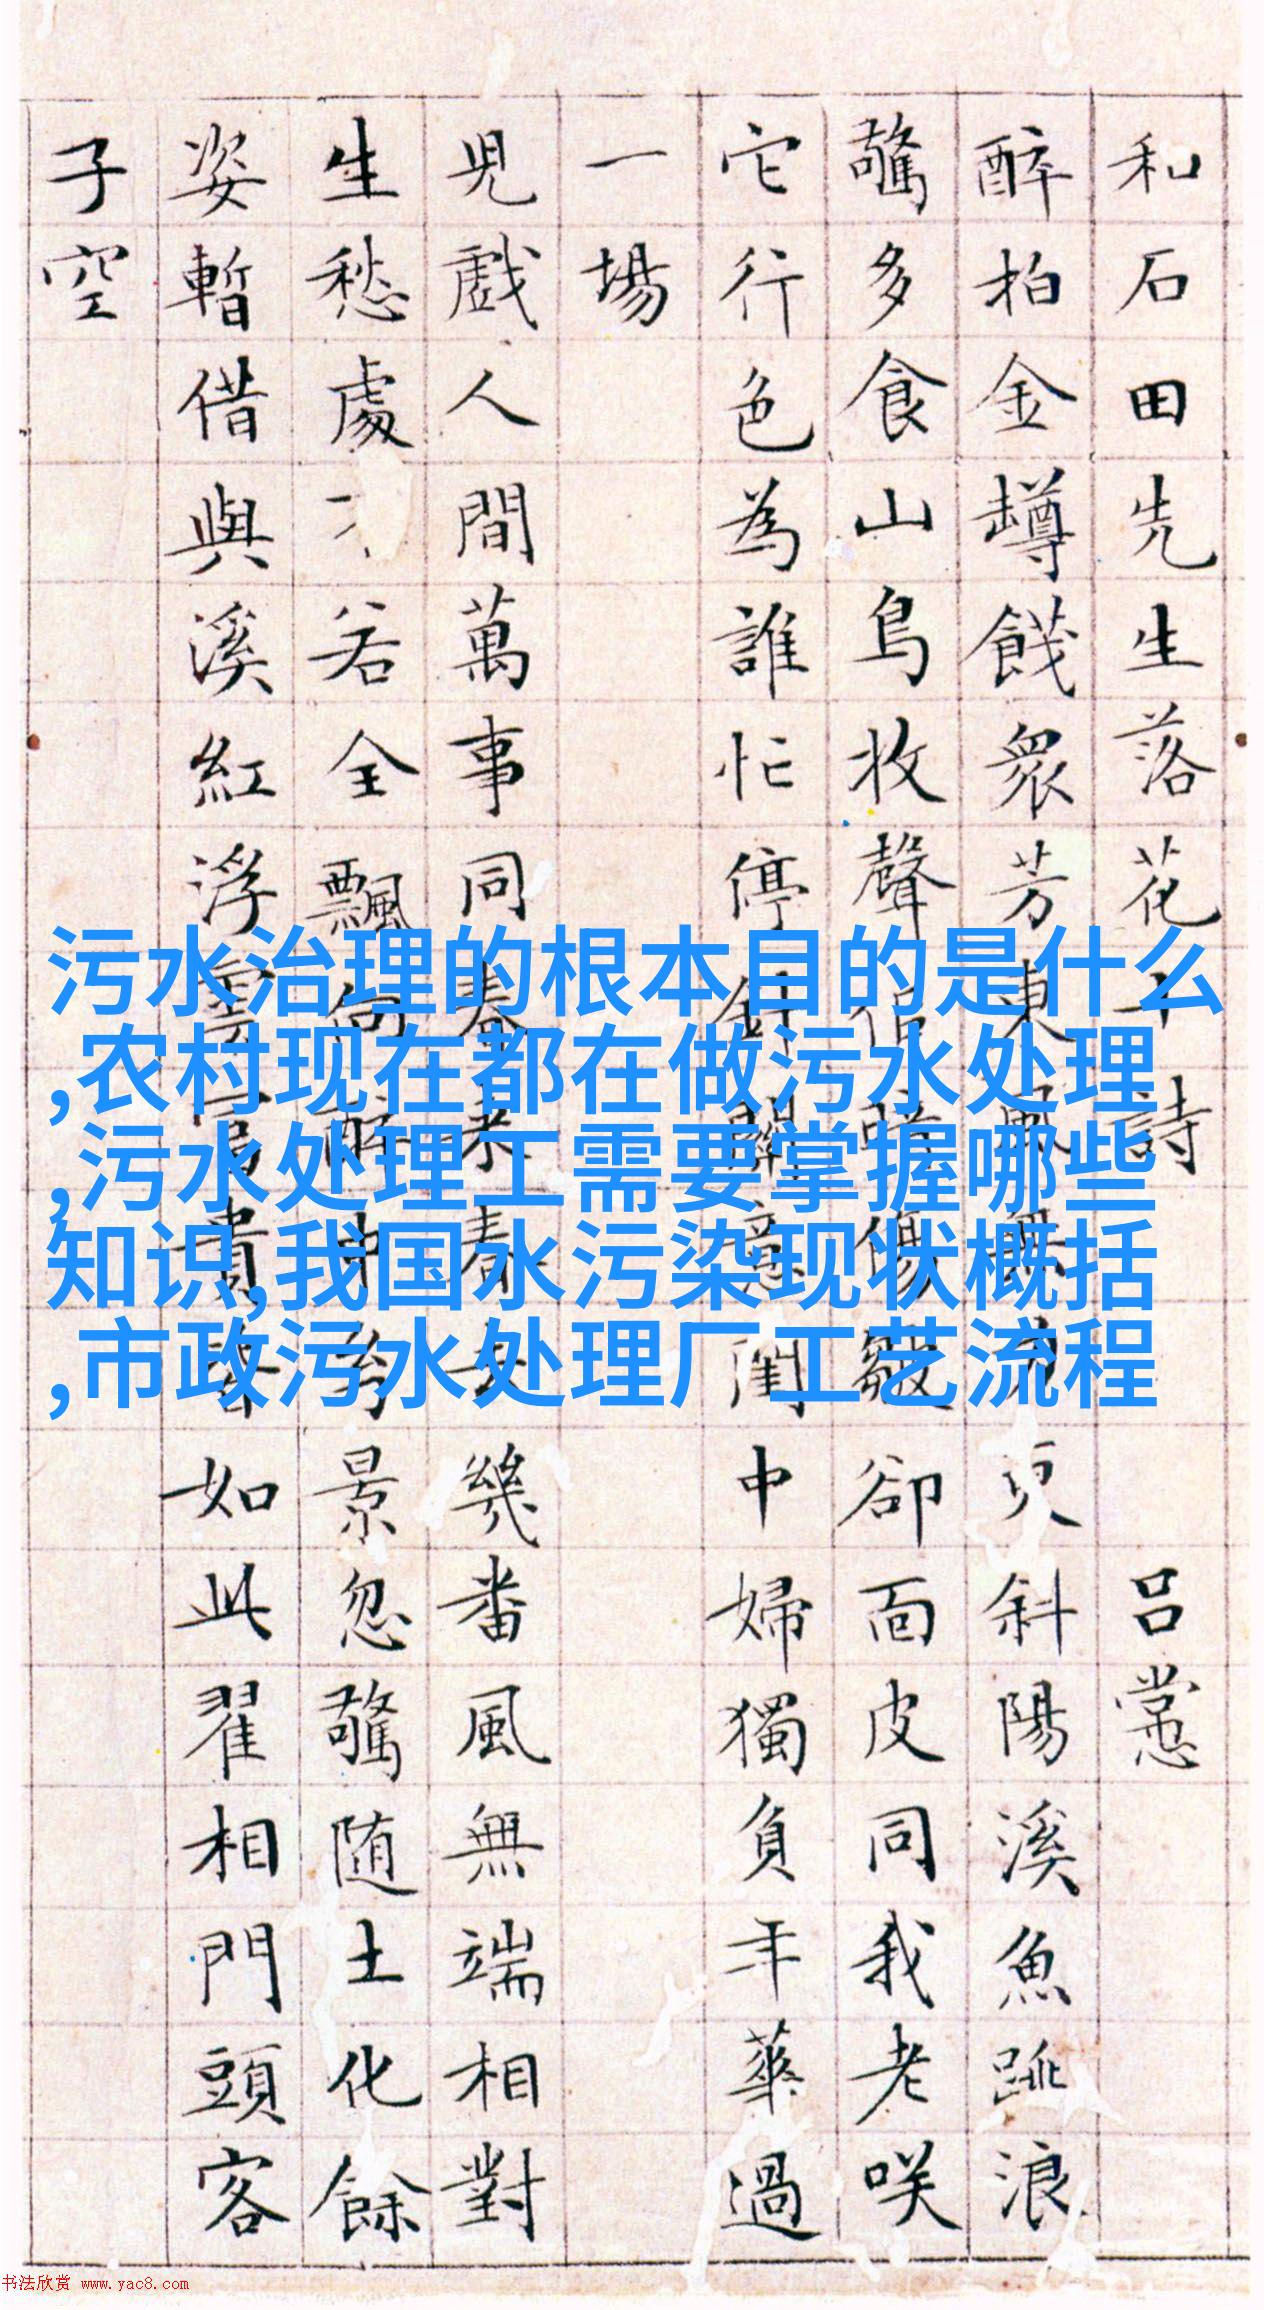 和石田先生落花十詩 呂㦂
醉拍金罇餞衆芳東風斜陽溪魚跳浪
驚多食山鳥收聲暗傷皺卻面皮同我老咲
它行色為誰忙停針意閨中婦獨負年華過
一場
児戲人間萬事同春來春去幾番風無端相對
生愁處若全飄向醉中景忽驚随土化餘
姿暫借與溪紅浮雲富貴如此翟相門頭客
子空
污水治理的根本目的是什么
,农村现在都在做污水处理
,污水处理工需要掌握哪些
知识,我国水污染现状概括
,市政污水处理厂工艺流程
书法欣赏 www.yac8.com